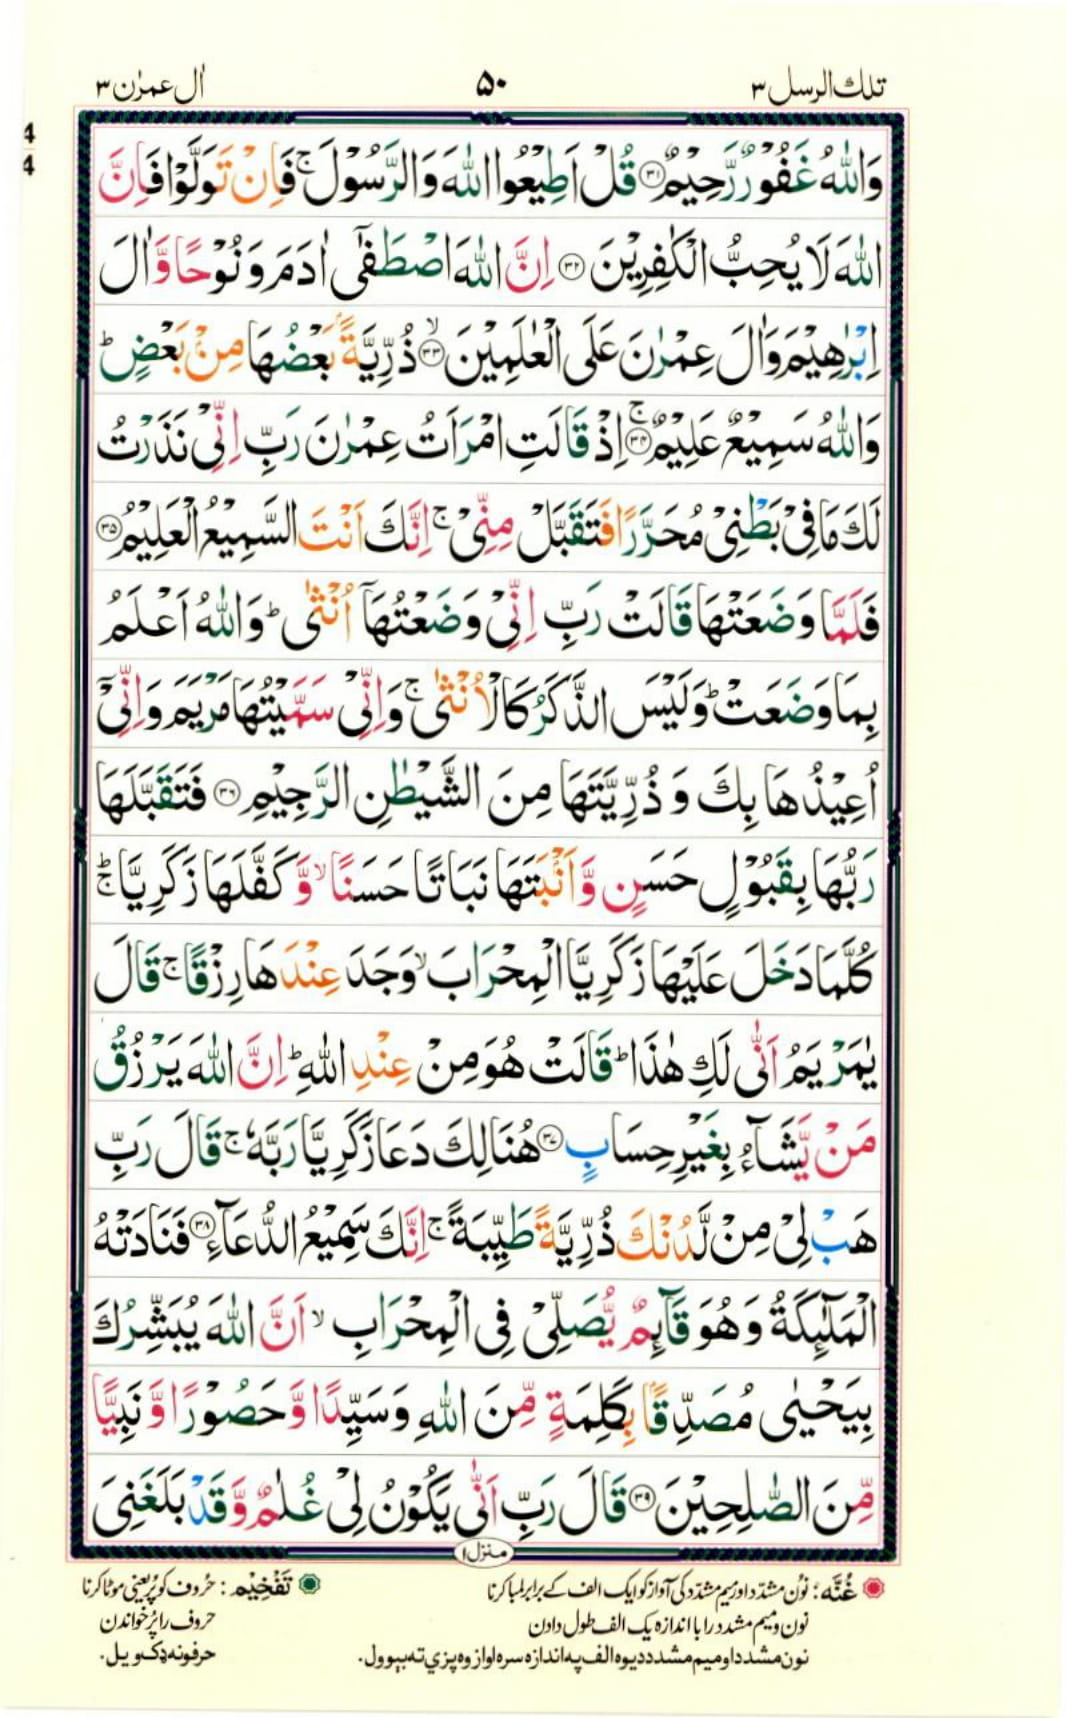 تلك الرسل ٣
۵۰
اٰل عمرٰن ٣
4
4
وَاللّٰهُ غَفُوْرٌ رَّحِيْمٌ ﴿۳۱﴾ قُلْ اَطِيْعُوا اللّٰهَ وَالرَّسُوْلَ ۚ فَاِنْ تَوَلَّوْا فَاِنَّ
اللّٰهَ لَا يُحِبُّ الْكٰفِرِيْنَ ﴿۳۲﴾ اِنَّ اللّٰهَ اصْطَفٰٓى اٰدَمَ وَنُوْحًا وَّاٰلَ
اِبْرٰهِيْمَ وَاٰلَ عِمْرٰنَ عَلَى الْعٰلَمِيْنَ ﴿۳۳﴾ ۙ ذُرِّيَّةًۢ بَعْضُهَا مِنْۢ بَعْضٍ ؕ
وَاللّٰهُ سَمِيْعٌ عَلِيْمٌ ﴿۳۴﴾ ۚ اِذْ قَالَتِ امْرَاَتُ عِمْرٰنَ رَبِّ اِنِّىْ نَذَرْتُ
لَكَ مَا فِىْ بَطْنِىْ مُحَرَّرًا فَتَقَبَّلْ مِنِّىْ ۚ اِنَّكَ اَنْتَ السَّمِيْعُ الْعَلِيْمُ ﴿۳۵﴾
فَلَمَّا وَضَعَتْهَا قَالَتْ رَبِّ اِنِّىْ وَضَعْتُهَاۤ اُنْثٰى ؕ وَاللّٰهُ اَعْلَمُ
بِمَا وَضَعَتْ ؕ وَلَيْسَ الذَّكَرُ كَالْاُنْثٰى ۚ وَاِنِّىْ سَمَّيْتُهَا مَرْيَمَ وَاِنِّىْۤ
اُعِيْذُهَا بِكَ وَ ذُرِّيَّتَهَا مِنَ الشَّيْطٰنِ الرَّجِيْمِ ﴿۳۶﴾ فَتَقَبَّلَهَا
رَبُّهَا بِقَبُوْلٍ حَسَنٍ وَّاَنْۢبَتَهَا نَبَاتًا حَسَنًا ۙ وَّ كَفَّلَهَا زَكَرِيَّا ۚؕ
كُلَّمَا دَخَلَ عَلَيْهَا زَكَرِيَّا الْمِحْرَابَ ۙ وَجَدَ عِنْدَهَا رِزْقًا ۚ قَالَ
يٰمَرْيَمُ اَنّٰى لَكِ هٰذَا ؕ قَالَتْ هُوَ مِنْ عِنْدِ اللّٰهِ ؕ اِنَّ اللّٰهَ يَرْزُقُ
مَنْ يَّشَآءُ بِغَيْرِ حِسَابٍ ﴿۳۷﴾ هُنَالِكَ دَعَا زَكَرِيَّا رَبَّهٗ ۚ قَالَ رَبِّ
هَبْ لِىْ مِنْ لَّدُنْكَ ذُرِّيَّةً طَيِّبَةً ۚ اِنَّكَ سَمِيْعُ الدُّعَآءِ ﴿۳۸﴾ فَنَادَتْهُ
الْمَلٰٓئِكَةُ وَهُوَ قَآئِمٌ يُّصَلِّىْ فِى الْمِحْرَابِ ۙ اَنَّ اللّٰهَ يُبَشِّرُكَ
بِيَحْيٰى مُصَدِّقًۢا بِكَلِمَةٍ مِّنَ اللّٰهِ وَسَيِّدًا وَّحَصُوْرًا وَّنَبِيًّا
مِّنَ الصّٰلِحِيْنَ ﴿۳۹﴾ قَالَ رَبِّ اَنّٰى يَكُوْنُ لِىْ غُلٰمٌ وَّقَدْ بَلَغَنِىَ
منزل ١
غُنَّه : نُون مشدّد اور میم مشدّد کی آواز کو ایک الف کے برابر لمبا کرنا
نون ومیم مشدد را با اندازہ یک الف طول دادن
نون مشدد او میم مشدد دیوه الف په اندازه سره اواز وه پزې ته بېوول.
تَفْخِیْم : حُروف کو پُر یعنی موٹا کرنا
حروف را پُر خواندن
حرفونه ډک ویل.